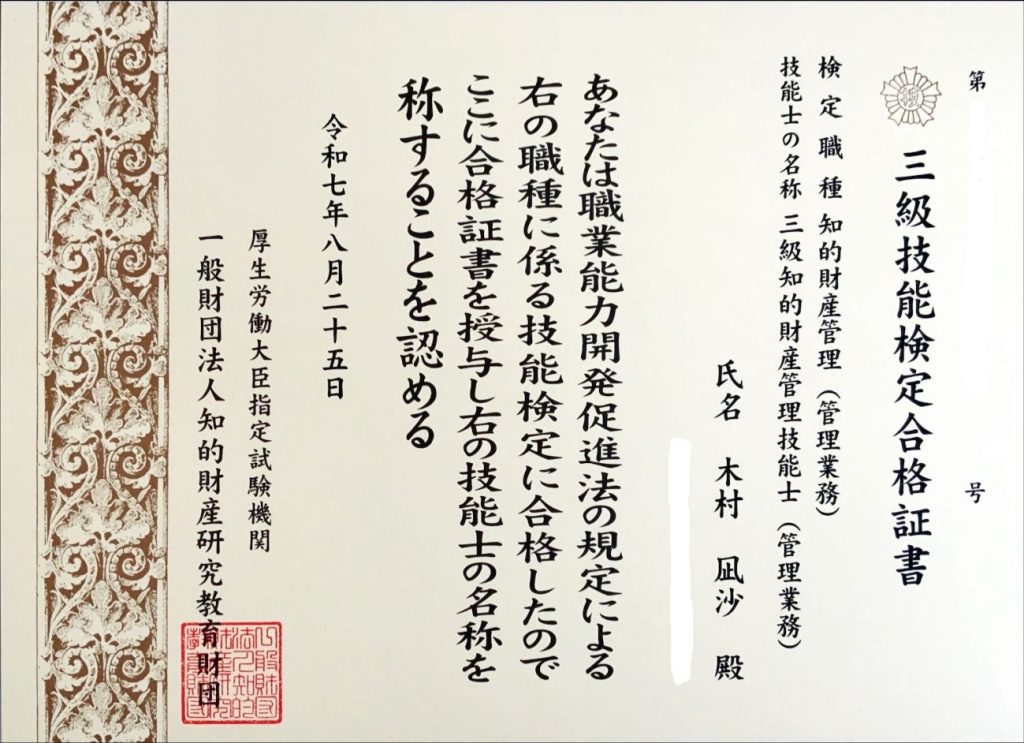 第　号
三級技能検定合格証書
検定職種 知的財産管理（管理業務）
技能士の名称 三級知的財産管理技能士（管理業務）
氏名　木村　凪沙　殿
あなたは職業能力開発促進法の規定による
右の職種に係る技能検定に合格したので
ここに合格証書を授与し右の技能士の名称を
称することを認める
令和七年八月二十五日
厚生労働大臣指定試験機関
一般財団法人知的財産研究教育財団